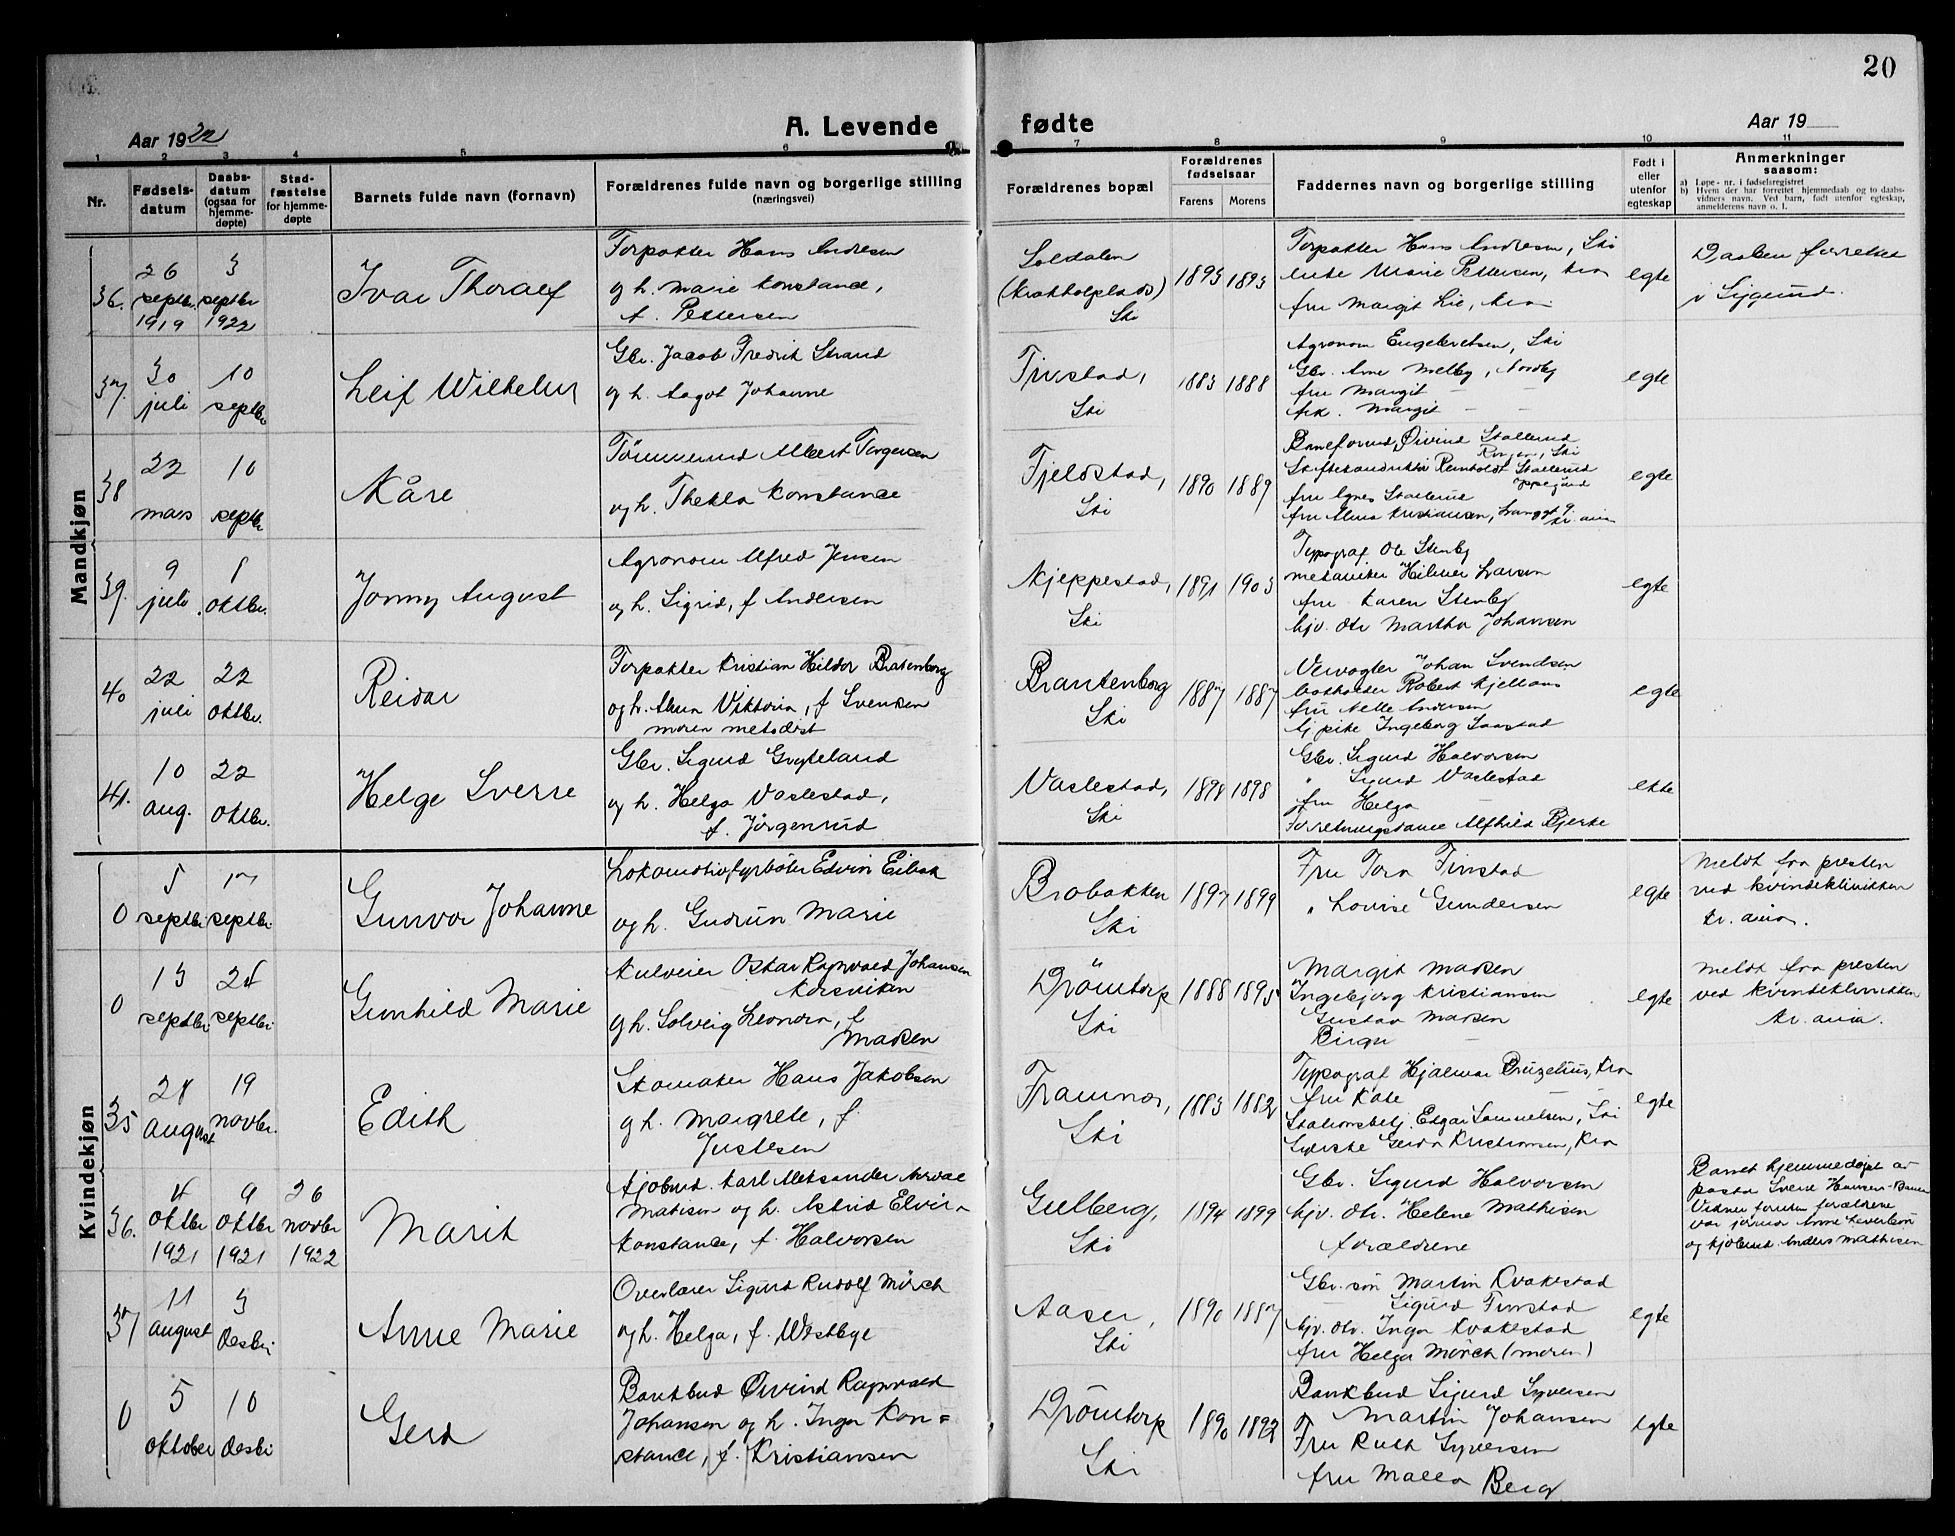 20
Aar 1922
A. Levende
fødte
Aar 19
1 2 3 4 5 6 7 8 9 10 11
Nr.
Fødsels-
datum
Daabs-
datum
(ogsaa for
hjemme-
døpte)
Stad-
fæstelse
for hjemme-
døpte
Barnets fulde navn (fornavn)
Forældrenes fulde navn og borgerlige stilling
(næringsvei)
Forældrenes bopæl
Forældrenes
fødselsaar
Farens Morens
Faddernes navn og borgerlige stilling
Født i
eller
utenfor
egteskap
Anmerkninger
saasom:
a) Løpe-nr. i fødselsregistret
b) Hvem der har forrettet hjemmedaab og to daabs-
vidners navn. Ved barn, født utenfor egteskap,
anmelderens navn o. l.
Mandkjøn
36.
26
septbr.
1919
3
septbr
1922
Ivar Thoralf
Forpakter Hans Andresen
og h. Marie Konstance,
f. Pettersen
Soldalen
Ski
1893 1893
Forpakter Hans Andresen, Ski
Marie Pettersen, Kra
fru Margit Lie, Kra
egte
Daaben forrettet
i Siggerud.
37.
30
juli
10
septbr
Leif Wilhelm
Gbr. Jacob Fredrik Strand
og h. Aagot Johanne
Finstad,
Ski
1883 1888
Agronom Engebretsen, Ski
Gbr. Arne Melby, Nordby
fru Margit —
frk. Margit — —
egte
38
22
mars
10
septbr
Kåre
Tømmermand Albert Torgersen
og h. Thekla Konstance
Fjeldstad,
Ski
1890 1889
Øivind Stallerud
Ski
Reinholdt Stallerud
Oppegård
fru Agnes Stallerud
fru Alma Kristiansen,
Kr.ania
egte
39.
9
juli
1
oktbr.
Jonny August
Agronom Alfred Jensen
og h. Sigrid, f. Andersen
Kjeppestad,
Ski
1891 1903
Typograf Ole Stenby
mekaniker Hilmer Larsen
fru Karen Stenby
hjv. dtr Martha Johansen
egte
40
22
juli
22
oktbr.
Reidar
Forpakter Kristian Hildor Bratenberg
og h. Anna Viktoria, f. Svensken
moren metodist
Brantenborg
Ski
1887 1887
Johan Svendsen
Robert Kjellaas
fru Nelle Andersen
Ingeborg Saastad
egte
41.
10
aug.
22
oktbr.
Helge Sverre
Gbr. Sigurd Gryteland
og h. Helga Vaslestad,
f. Jörgenrud
Vaslestad,
Ski
1898 1898
Gbr. Sigurd Halvorsen
" Sigurd Vaslestad
fru Helga —
Forretningsdame Alfhild Bjerke
ekte
Kvindekjøn
0
5
septbr
17
septbr
Gunvor Johanne
Lokomotivfyrbøter Edvin Eibak
og h. Gudrun Marie
Brobakken
Ski
1897 1899
Fru Tora Finstad
" Lovise Gundersen
egte
Meldt fra presten
ved kvindeklinikken
Kr.ania.
0
13
septbr
24
septbr
Gunhild Marie
Oskar Ragnvald Johansen
Korsviken
og h. Solveig Leonora, f.
Madsen
Drömtorp
Ski
1888 1895
Margit Madsen
Ingebjørg Kristiansen
Gustav Madsen
Birger —
egte
Meldt fra presten
ved kvindeklinikken
Kr.ania.
35
28
august
19
novbr.
Edith
Skomaker Hans Jakobsen
og h. Margrete, f.
Justesen
Framnes,
Ski
1883 1882
Typograf Hjalmar Bruzelius, Kra
fru Kate —
Stationsbetj. Edgar Samuelsen, Ski
Syerske Gerda Kristiansen, Kra
egte
36.
4
oktbr
1921
9
oktbr
1921
26
novbr
1922
Marit
Karl Aleksander
Matisen og h. Astrid Elvira
Konstance, f. Halvorsen
Gulberg,
Ski
1894 1899
Gbr. Sigurd Halvorsen
hjv. dtr. Helene Mathisen
forældrene
egte
Barnet hjemmedøpt av
pastor Sverd Hansen-Bauer
Vidner foruten forældrene
var jormor Anne Leverson
og kjøbmd. Anders Mathisen
37
11
august
3
desbr
Anne Marie
Overlærer Sigurd Rudolf Mörch
og h. Helga, f. Westbye
Aaser,
Ski
1890 1887
Gbr. søn Martin Kvakestad
— Sigurd Finstad
hjv. dtr. Inga Kvakestad
fru Helga Mörch (moren)
egte
0
5
oktober
10
desbr
Gerd
Bankbud Øivind Ragnvald
Johansen og h. Inga Kon=
stance, f. Kristiansen
Drömtorp
Ski
1890 1892
Bankbud Sigurd Syversen
Martin Johansen
Fru Ruth Syversen
fru Malla Berg
egte